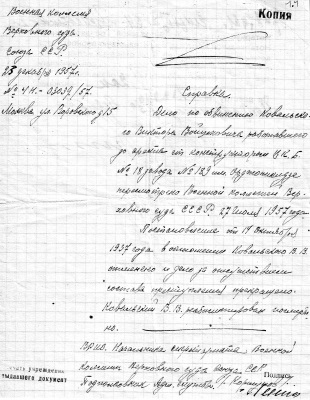 Копия
Военная коллегия
Верховного суда
Союза ССР
23 декабря 1957 г.
№ 4н-03039/57.
Москва ул. Воровского д 15
Справка.
Дело по обвинению Ковальско-
го Виктора работавшего
до ареста ст. конструктором
№ 18 завода № им Орджоникидзе
пересмотрено Военной коллегией Вер-
ховного суда СССР 27 июля 1957 года
Постановление от 19 октября
1937 года в отношении Ковальского В. В.
отменено и дело за отсутствием
состава преступления прекращено.
Ковальский В. В. реабилитирован посмерт-
но.
Врио. Начальника секретариата Военной
коллегии Верховного суда Союза ССР
Подполковник адм. службы
Подпись
документ